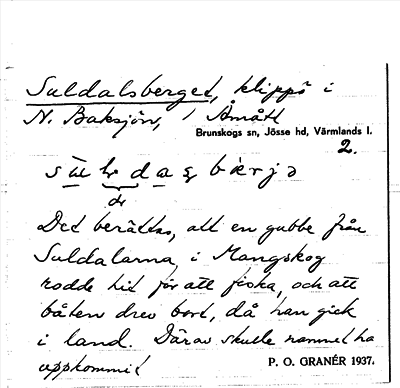 Suldalsberget, klippö i
N. Baksjön, / Åmått
Brunskogs sn, Jösse hd, Värmlands l.
2.
Det berättas, att en gubbe från
Suldalarna i Mangskog
rodde hit för att fiska, och att
båten drev bort, då han gick
i land. Därav skulle namnet ha
uppkommit
P. O. GRANÉR 1937.